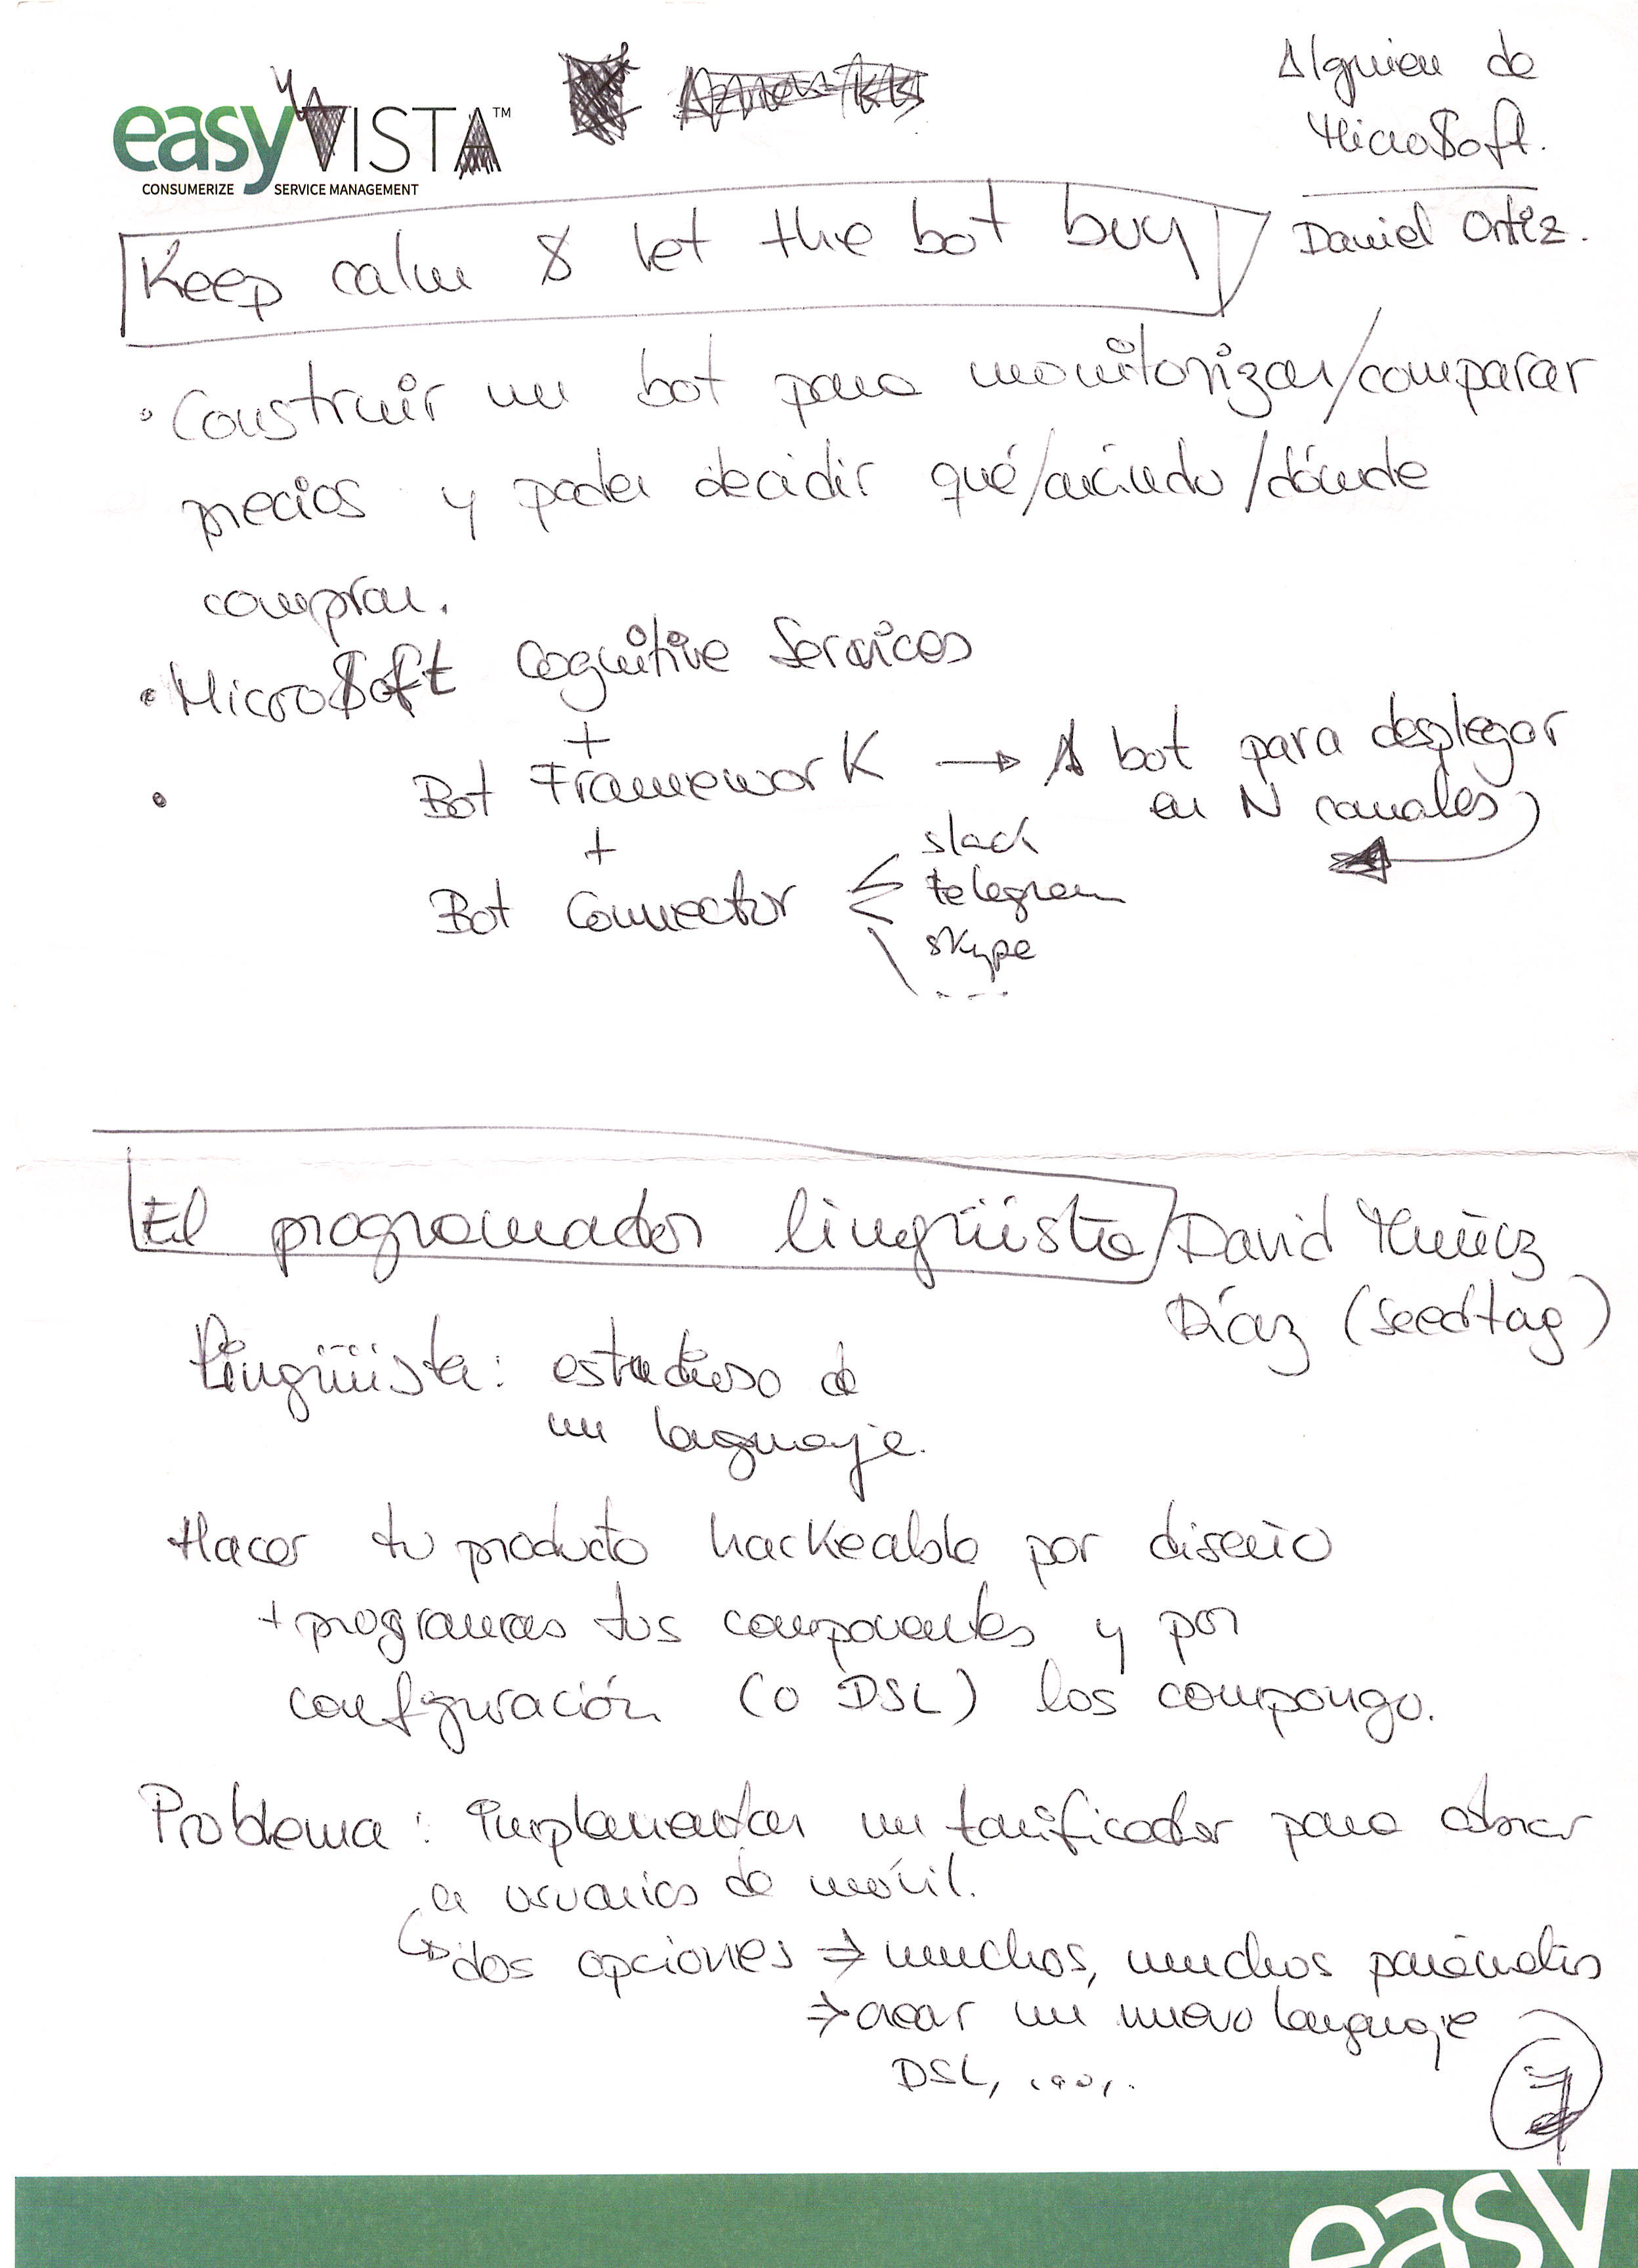 easyVISTA™
CONSUMERIZE SERVICE MANAGEMENT
Alguien de
MicroSoft.
Daniel Ortiz.
Keep calm & let the bot buy
• Construir un bot para monitorizar/comparar
precios y poder decidir qué/cuándo/dónde
comprar.
• MicroSoft Cognitive Services
+
• Bot Framework → 1 bot para desplegar
en N canales
+
Bot Connector
slack
telegram
skype
...
El programador lingüista
David Muñiz
Díaz (seedtag)
Lingüista: estudioso de
un lenguaje.
Hacer tu producto hackeable por diseño
+ programas tus componentes y por
configuración (o DSL) los compongo.
Problema: Implementar un tarificador para cobrar
a usuarios de móvil.
↳ dos opciones ⇒ muchos, muchos parámetros
⇒ crear un nuevo lenguaje
DSL, ....
7
easy